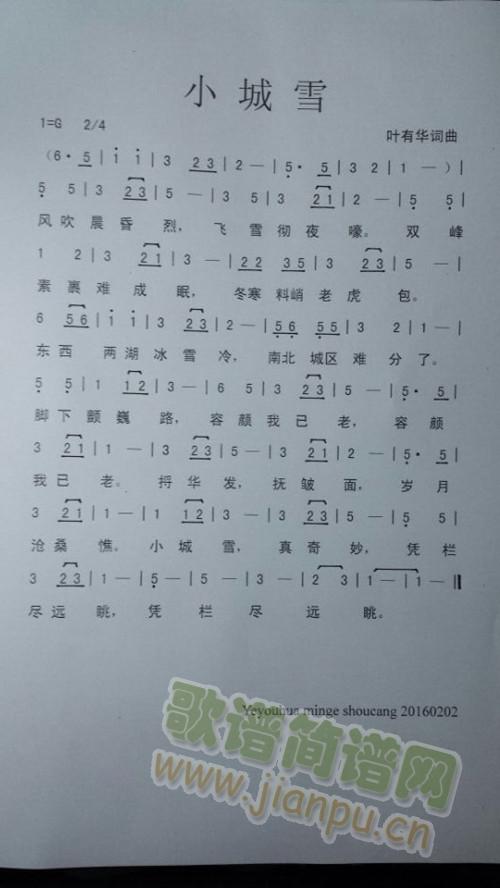 小城雪
1=G 2/4
叶有华词曲
(6· 5 | i i | 3 2 3 | 2 — | 5· 5 | 3 2 | 1 — ) |
5 5 | 3 2 3 | 5 — | 3 5 | 3 2 1 | 2 — | 5 5 |
风吹晨昏烈，飞雪彻夜嚎。双峰
1 2 | 3 2 1 | 3 — | 2 2 3 5 | 3 2 3 | 5 — |
素裹难成眠，冬寒料峭老虎包。
6 5 6 | i i | 3 2 3 | 2 — | 5 6 5 5 | 3 2 | 1 — |
东西两湖冰雪冷，南北城区难分了。
5 5 | 1 1 2 | 3 — | 6 5 | 3 2 3 | 2 — | 5· 5 |
脚下颤巍路，容颜我已老，容颜
3 2 1 | 2 — | 3 2 3 | 5 — | 3 2 1 | 2 — | 5· 5 |
我已老。捋华发，抚皱面，岁月
3 2 1 | 1 — | 1 1 2 | 3 — | 3 2 3 | 5 — | 5 5 |
沧桑憔。小城雪，真奇妙，凭栏
3 2 3 | 1 — | 5 — | 5 — | 3 — | 2 3 | 1 — | 1 — ‖
尽远眺，凭栏尽远眺。
Yeyouhua minge shoucang 20160202
歌谱简谱网
www.jianpu.cn